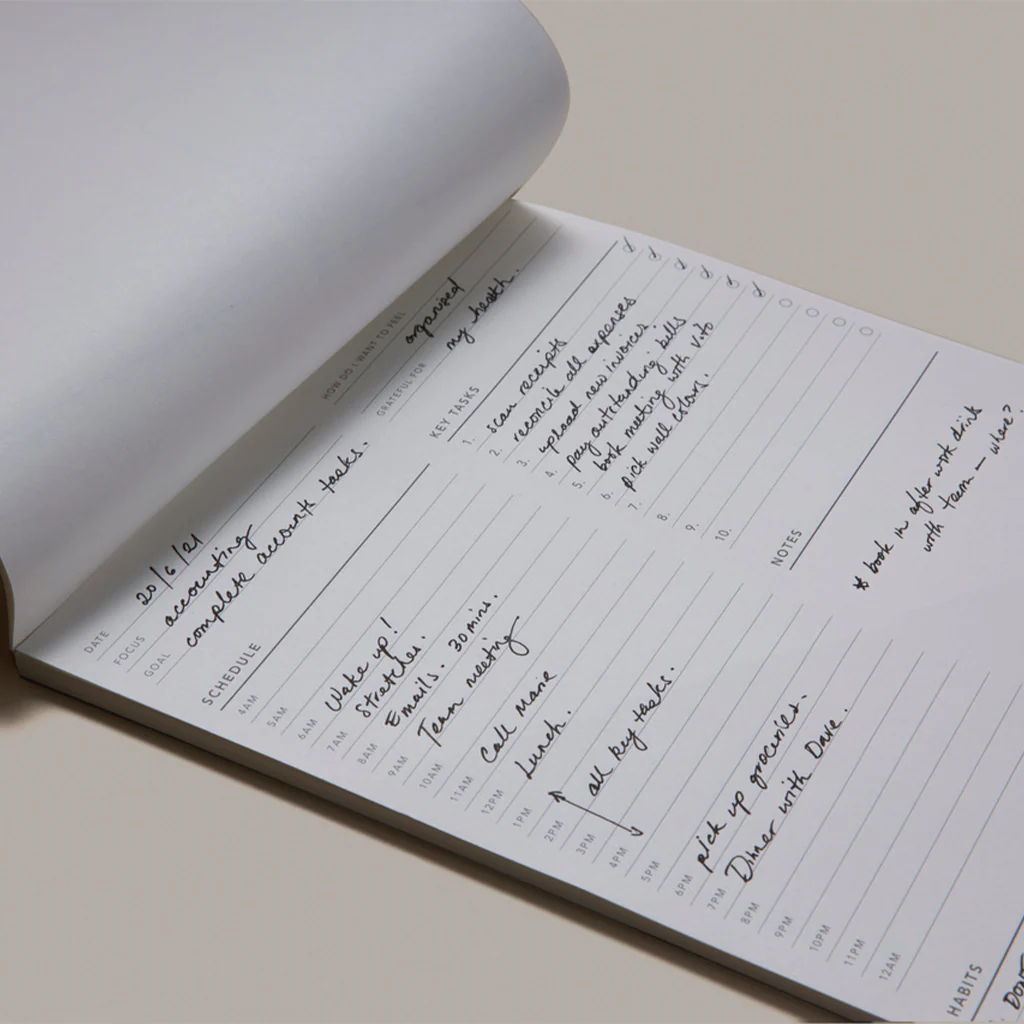 DATE 20/6/21
FOCUS accounting
GOAL complete accounts tasks.
HOW DO I WANT TO FEEL organised
GRATEFUL FOR my health.
SCHEDULE
4AM
5AM
6AM Wake up!
7AM Stretches.
8AM Emails. 30 mins.
9AM Team meeting
10AM
11AM Call Marie
12PM Lunch.
1PM
2PM all key tasks.
3PM
4PM
5PM
6PM pick up groceries.
7PM Dinner with Dave.
8PM
9PM
10PM
11PM
12AM
KEY TASKS
1. scan receipts
2. reconcile all expenses
3. upload new invoices
4. pay outstanding bills
5. book meeting with Vito
6. pick wall colours.
7.
8.
9.
10.
NOTES
* book in after work drink
with team — where?
HABITS